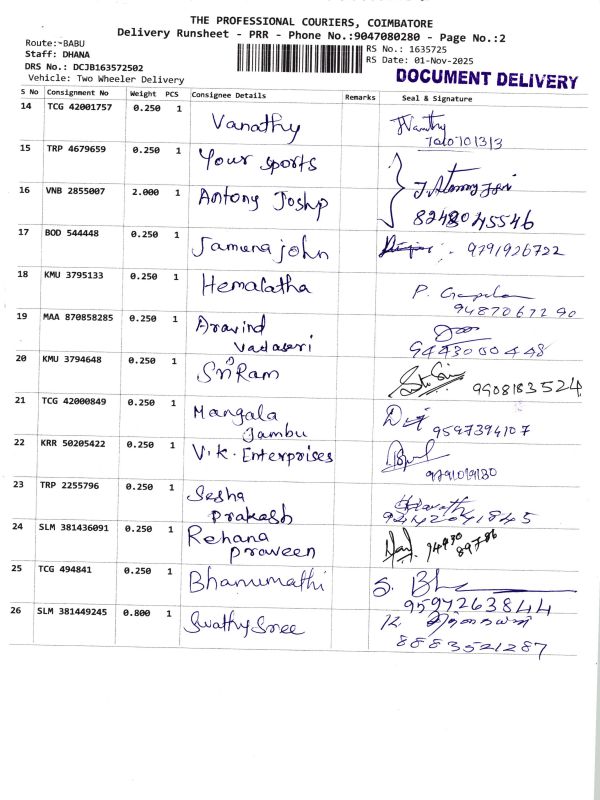 THE PROFESSIONAL COURIERS, COIMBATORE
Delivery Runsheet - PRR - Phone No.:9047080280 - Page No.:2
Route:-BABU
Staff: DHANA
DRS No.: DCJB163572502
Vehicle: Two Wheeler Delivery
RS No.: 1635725
RS Date: 01-Nov-2025
DOCUMENT DELIVERY
S No Consignment No Weight PCS Consignee Details Remarks Seal & Signature
14 TCG 42001757 0.250 1 Vanathy Vanthy
7010701313
15 TRP 4679659 0.250 1 Your sports
16 VNB 2855007 2.000 1 Antony Joshp
8248045546
17 BOD 544448 0.250 1 Jamuna john 9791926722
18 KMU 3795133 0.250 1 Hemalatha
9487067290
19 MAA 870858285 0.250 1 Aravind
Vadaseri
9443000448
20 KMU 3794648 0.250 1 SriRam 9908183524
21 TCG 42000849 0.250 1 Mangala
Jambu
9597394107
22 KRR 50205422 0.250 1 V.K. Enterprises
9791019180
23 TRP 2255796 0.250 1 Sesha
Prakash
9442041845
24 SLM 381436091 0.250 1 Rehana
Praveen
94430
89786
25 TCG 494841 0.250 1 Bhanumathi
9597263844
26 SLM 381449245 0.800 1 Swathy Sree
8883521287